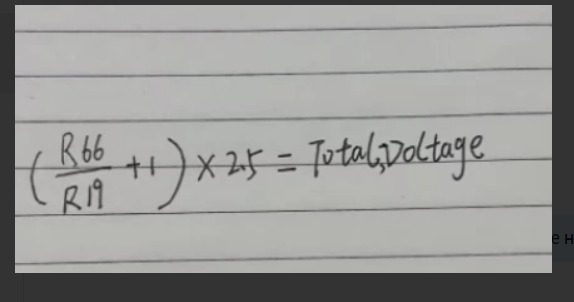 (R66/R19 + 1) × 2.5 = Total Voltage
е н